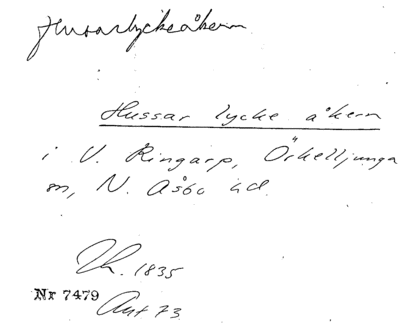 Husarlyckeåkern
Hussar lycke åkern
i V. Ringarp, Örkelljunga
sn, N. Åsbo hd.
1835
Nr 7479
Akt 73